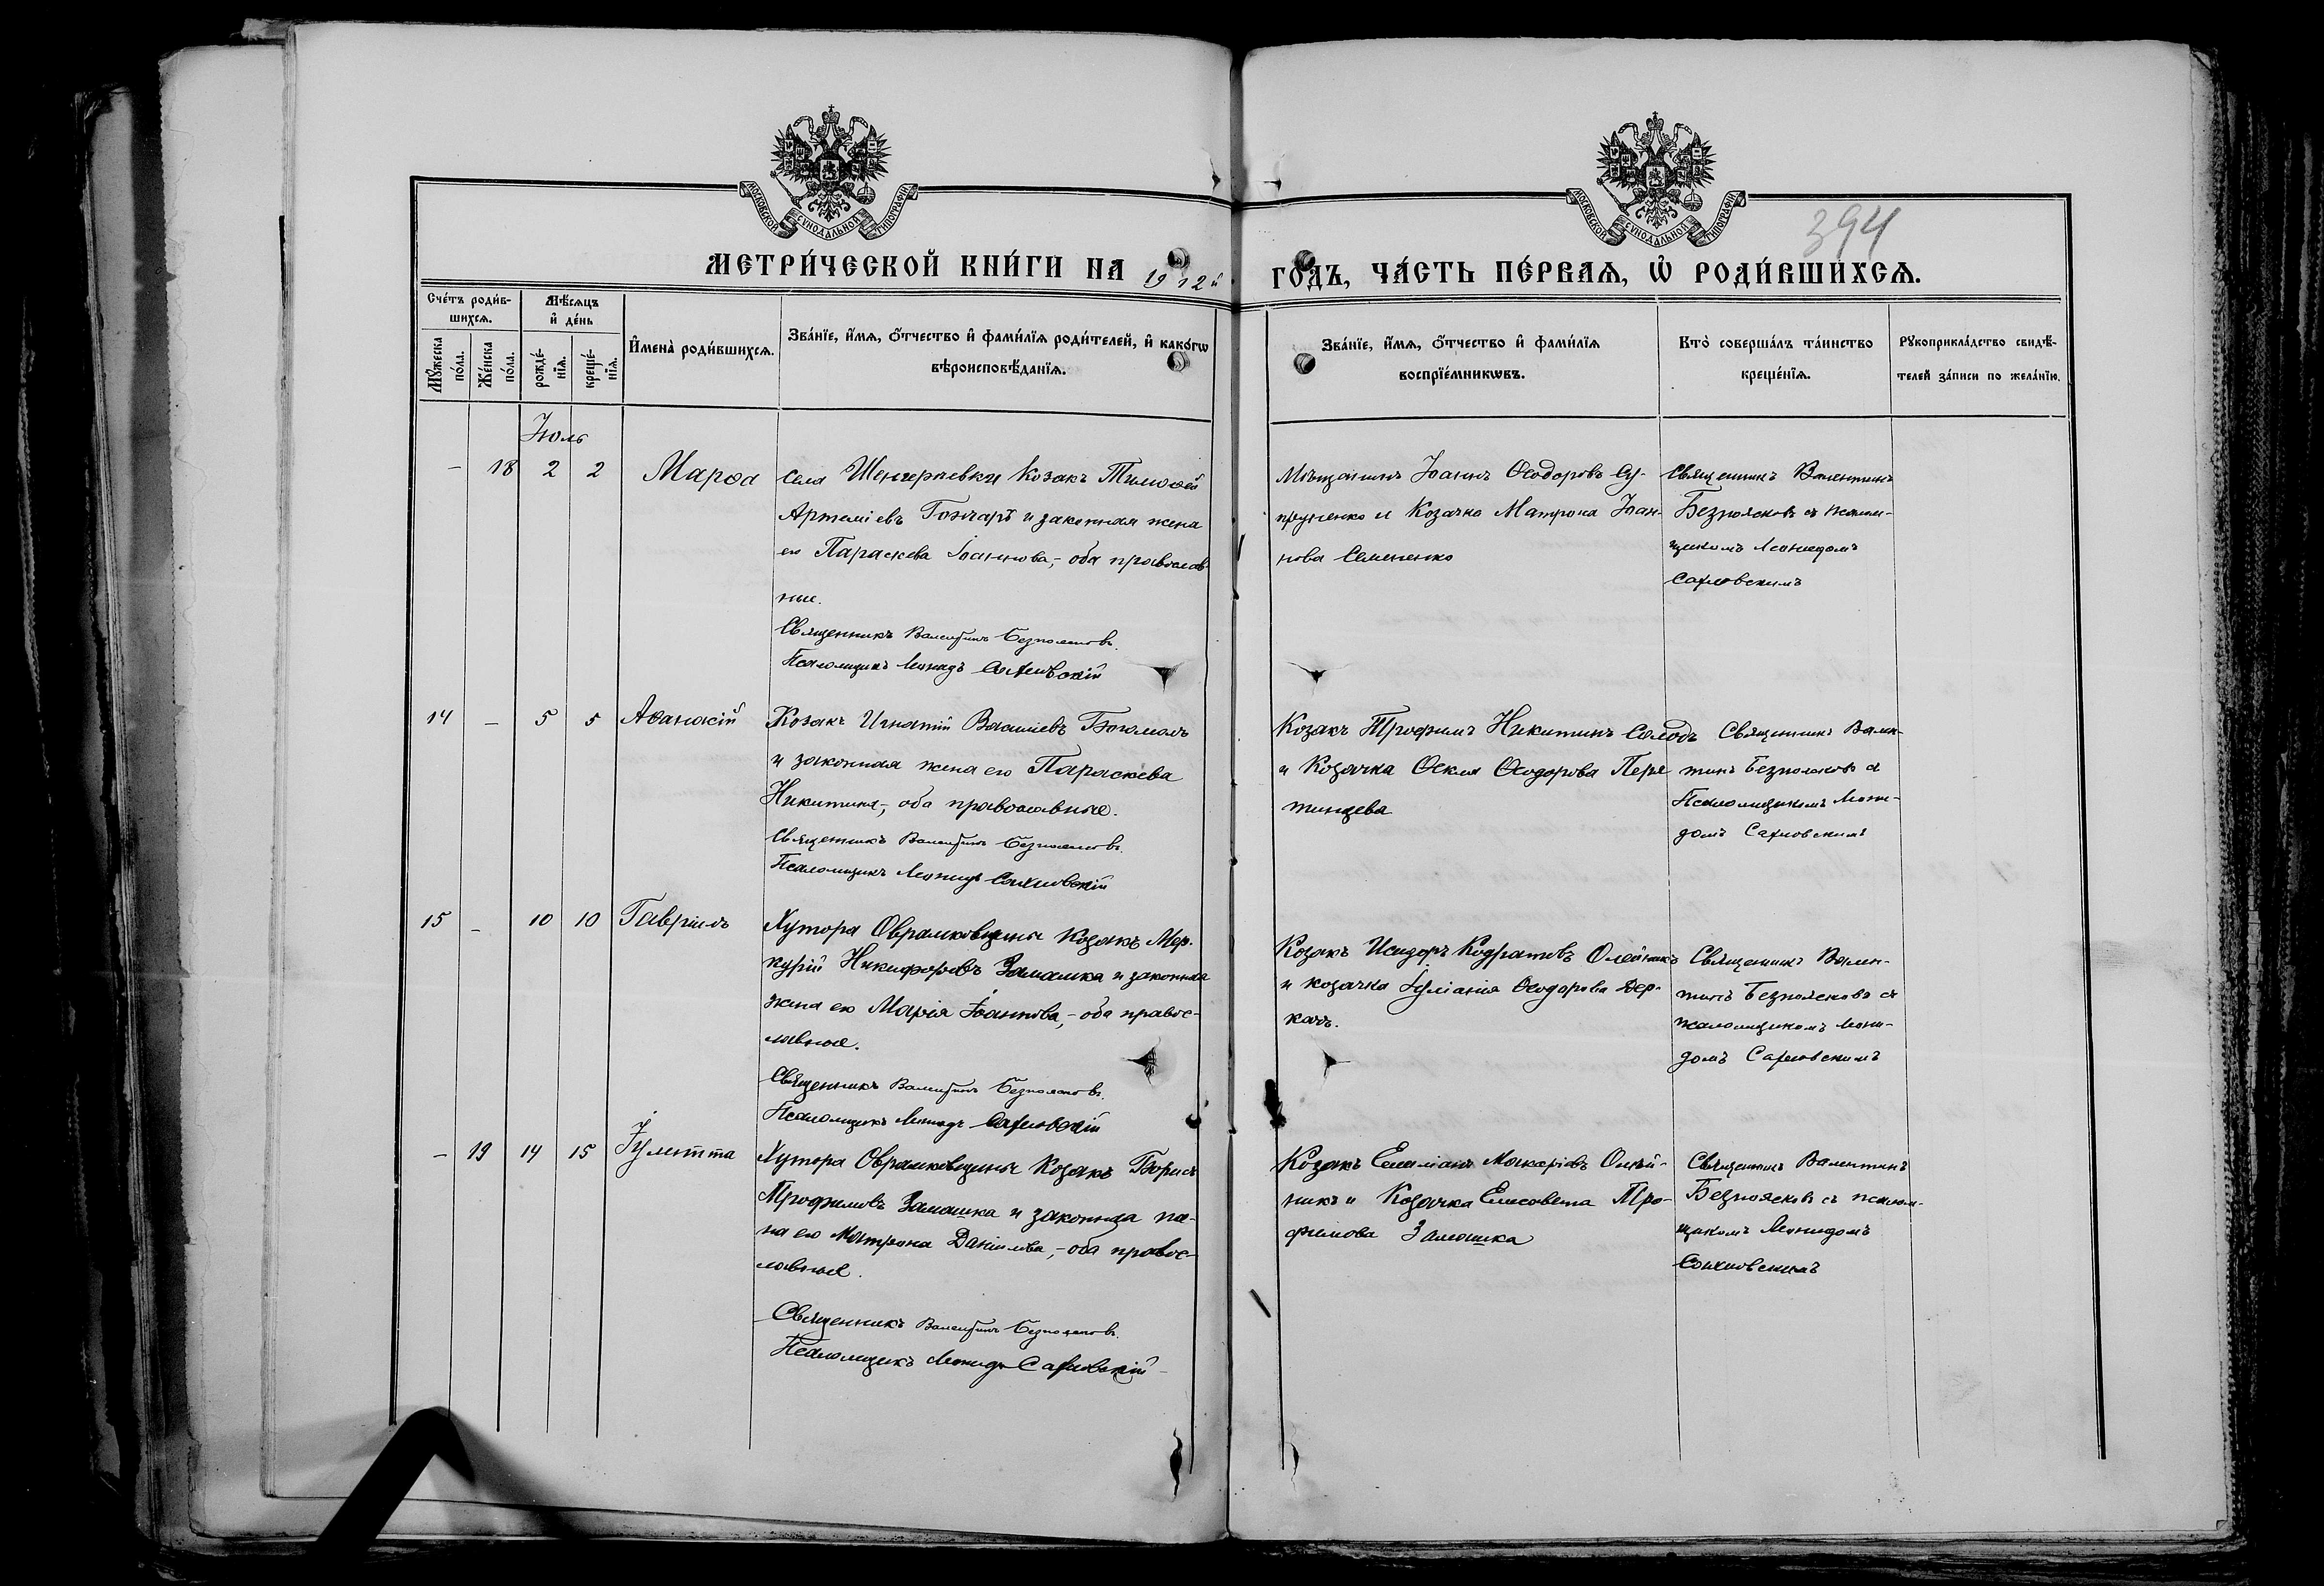 МОСКОВСКОЙ СУНОДАЛЬНОЙ ТИПОГРАФІИ
МОСКОВСКОЙ СУНОДАЛЬНОЙ ТИПОГРАФІИ
394
МЕТРИ́ЧЕСКОЙ КНИ́ГИ НА 1912й ГОДЪ, ЧА́СТЬ ПЕ́РВАѦ, Ѡ҆ РОДИ́ВШИХСѦ.
Сче́тъ роди́в-
шихсѧ.
Мѣ́сѧцъ
и҆ де́нь
Мꙋ́жеска по́ла.
Же́нска по́ла.
рожде́-
нїѧ.
креще́-
нїѧ.
И҆мена̀ роди́вшихсѧ.
Зва́нїе, и҆́мѧ, ѻ҆́тчество и҆ фами́лїѧ роди́телей, и҆ како́гѡ
вѣроисповѣ́данїѧ.
Зва́нїе, и҆́мѧ, ѻ҆́тчество и҆ фами́лїѧ
воспрїе́мникѡвъ.
Кто̀ соверша́лъ та́инство
креще́нїѧ.
Рꙋкоприкла́дство свидѣ́-
телей за́писи по жела́нїю.
Іюль
– 18 2 2 Марѳа
Села Козакъ Тимоѳей
Артеміевъ Гончаръ и законная жена
его Параскева Іоаннова,- оба православ-
ные.
Священникъ Валентинъ Безпоясковъ.
Псаломщикъ Леонидъ Сахновскій
Мѣщанинъ Іоаннъ Ѳеодоровъ Су-
пруненко и Козачка Матрона Іоан-
нова Семененко
Священникъ Валентинъ
Безпоясковъ съ псалом-
щикомъ Леонидомъ
Сахновскимъ
14 – 5 5 Аѳанасій
Козакъ Игнатій Василіевъ
и законная жена его Параскева
Никитина,- оба православные.
Священникъ Валентинъ Безпоясковъ.
Псаломщикъ Леонидъ Сахновскій
Козакъ Трофимъ Никитинъ Солодъ
и Козачка Ѳекла Ѳеодорова Перя
тинцева
Священникъ Вален-
тинъ Безпоясковъ съ
Псаломщикомъ Леони-
домъ Сахновскимъ
15 – 10 10 Гавріилъ
Хутора Оврамковщины Козакъ Мер-
курій Никифоровъ Замашка и законная
жена его Марія Іоаннова,- оба правос-
лавные.
Священникъ Валентинъ Безпоясковъ.
Псаломщикъ Леонидъ Сахновскій
Козакъ Исидоръ Кодратовъ Олейникъ
и козачка Іуліанія Ѳеодорова Дер-
качъ.
Священникъ Вален-
тинъ Безпоясковъ съ
псаломщикомъ Леони-
домъ Сахновскимъ
– 19 14 15 Іулитта
Хутора Оврамковщины Козакъ Борисъ
Трофимовъ Замашка и законная же-
на его Матрона Даніилова,- оба правос-
лавные.
Священникъ Валентинъ Безпоясковъ.
Псаломщикъ Леонидъ Сахновскій
Козакъ Емиліанъ Макаріевъ Олѣй-
никъ и Козачка Елисавета Тро-
фимова Замашка
Священникъ Валентинъ
Безпоясковъ съ псалом-
щикомъ Леонидомъ
Сахновскимъ